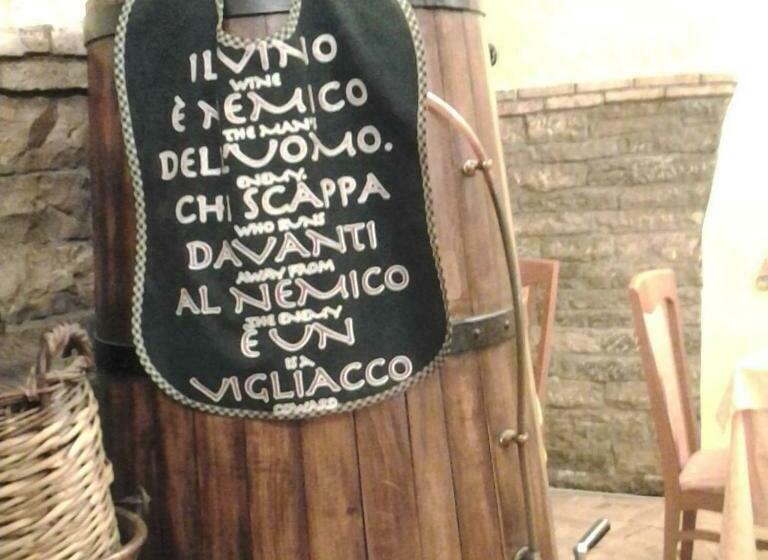 IL VINO
WINE
È NEMICO
THE MAN'S
DELL'UOMO.
ENEMY.
CHI SCAPPA
WHO RUNS
DAVANTI
AWAY FROM
AL NEMICO
THE ENEMY
È UN
IS A
VIGLIACCO
COWARD